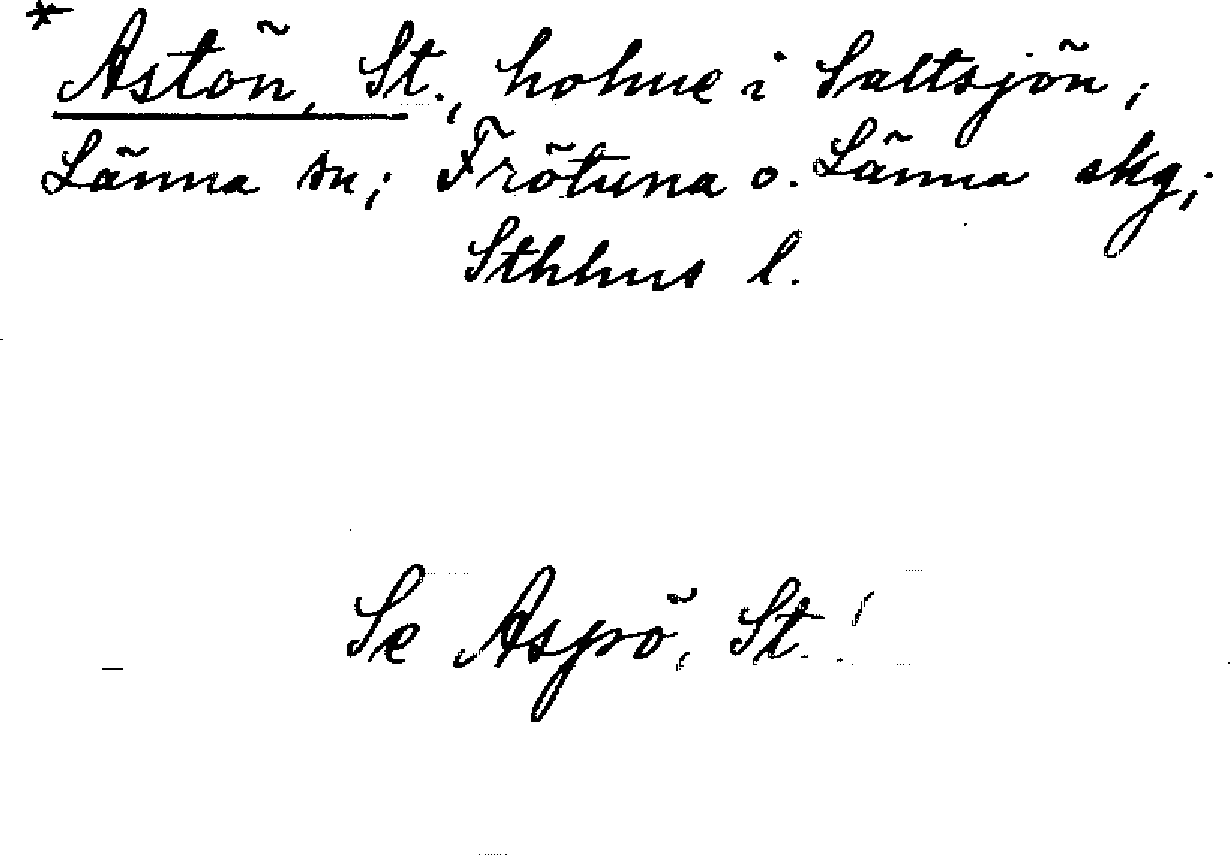 * Astön, St., holme i Saltsjön;
Länna sn; Frötuna o. Länna skg;
Sthlms l.
Se Aspö, St.!